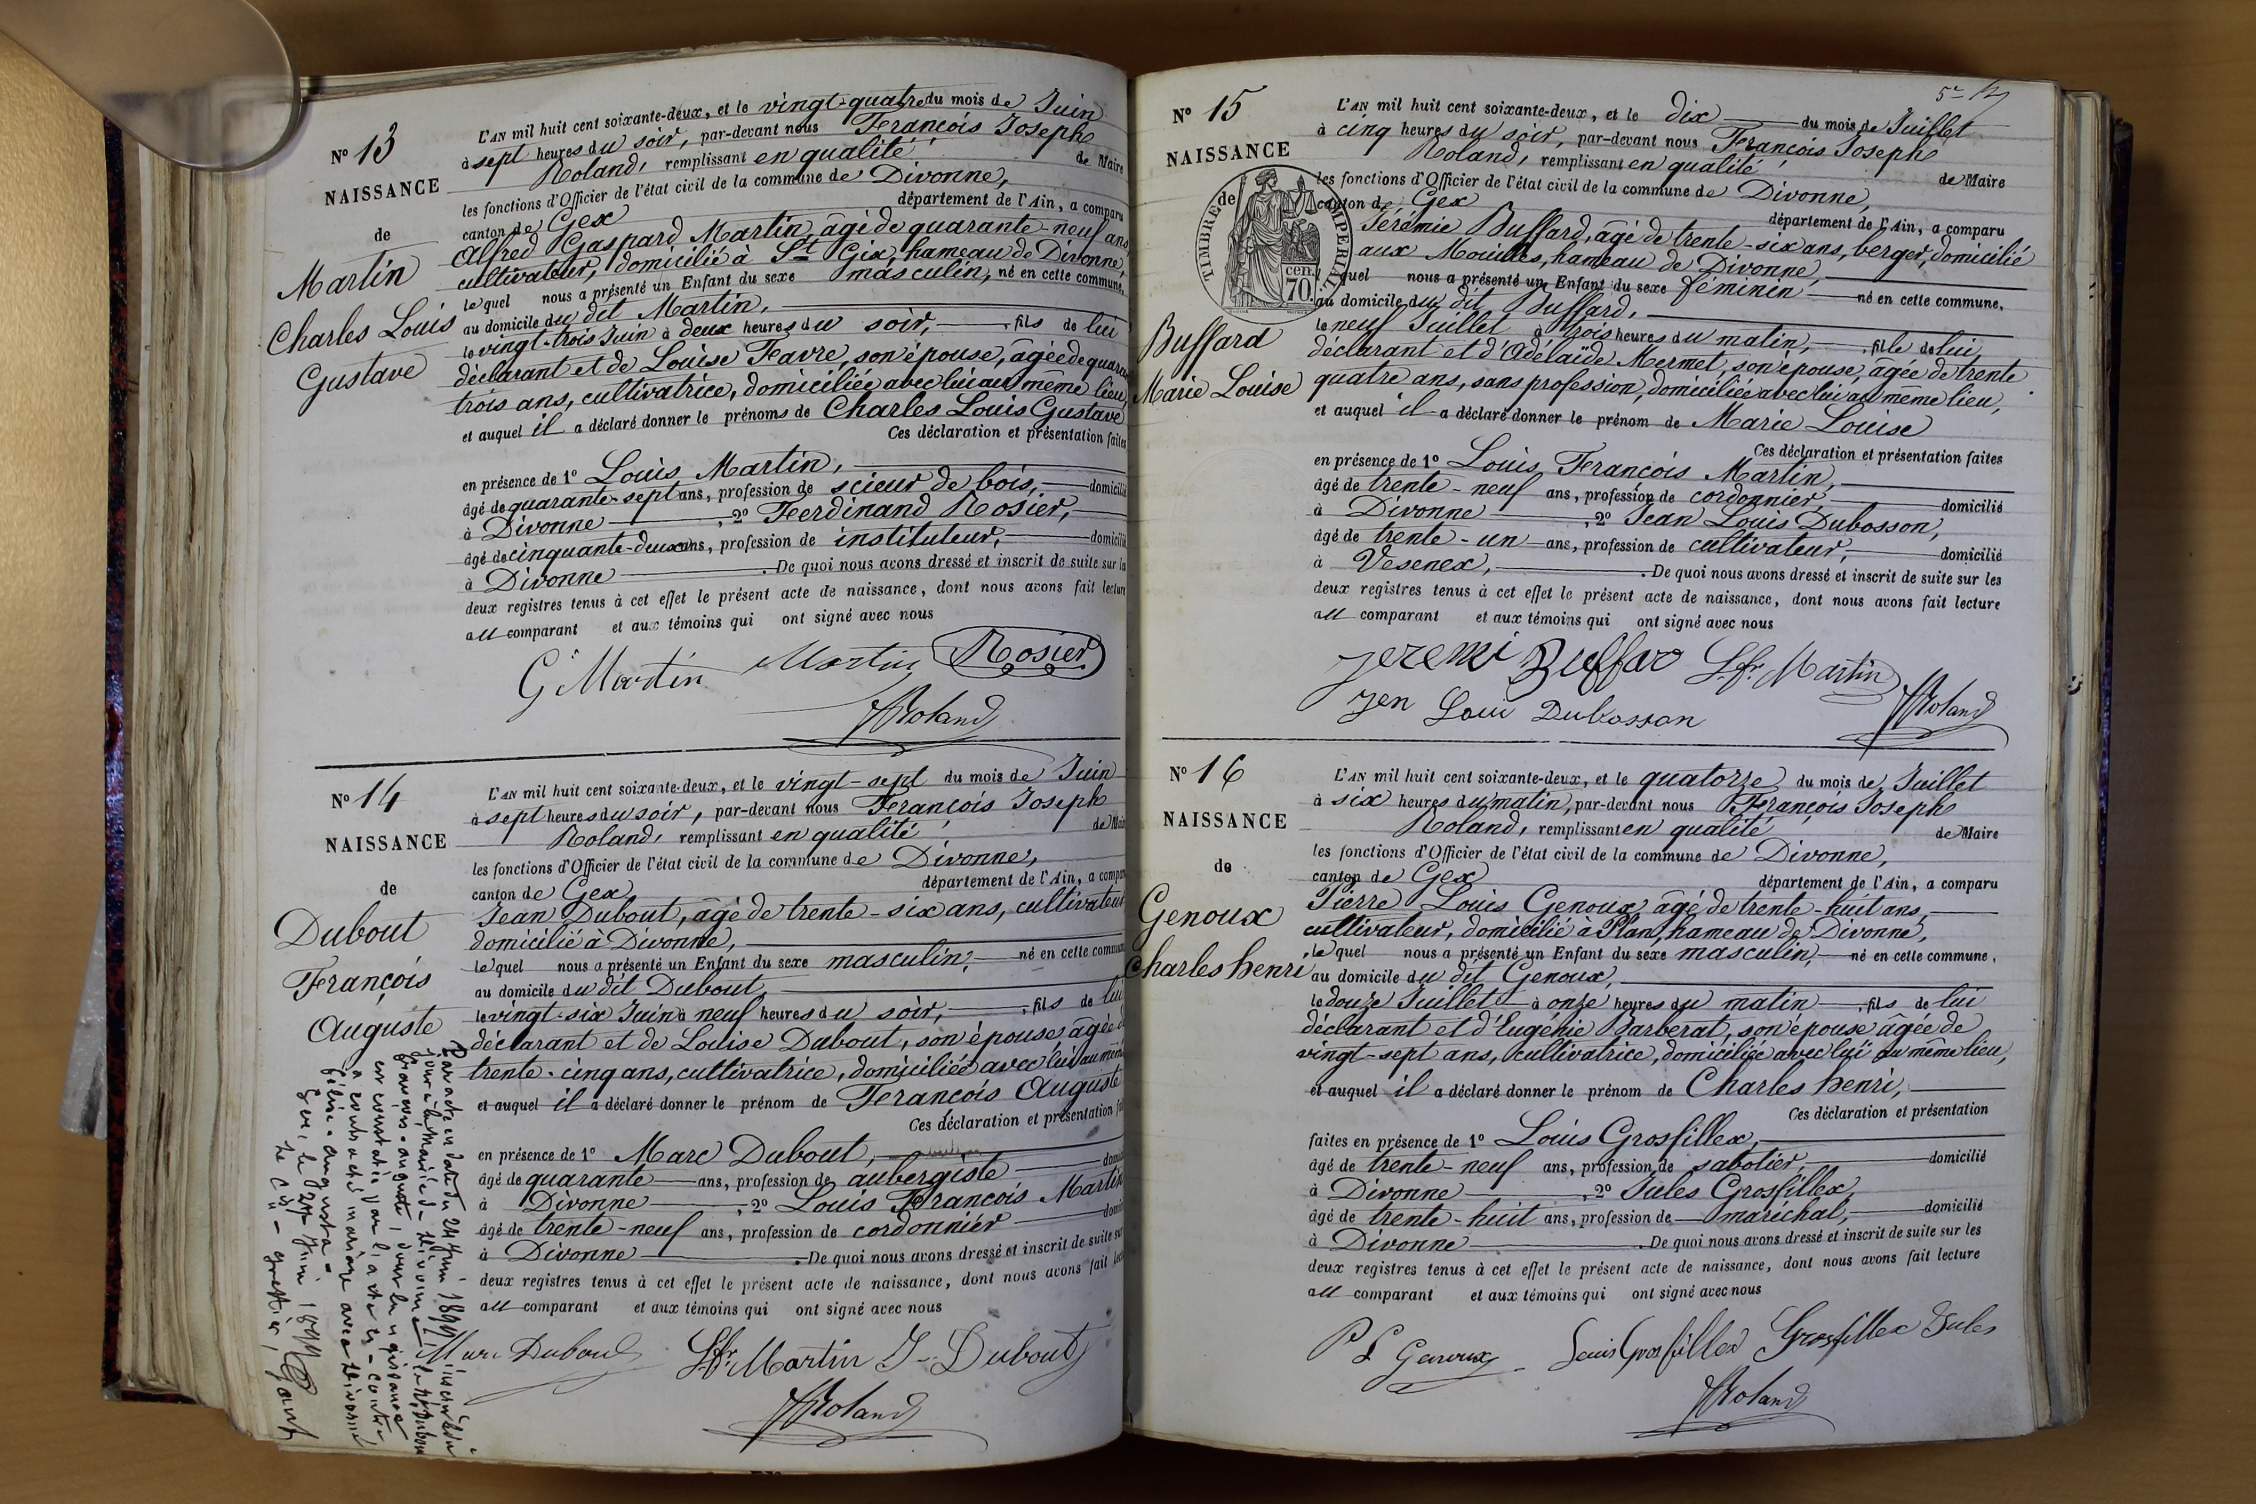 N° 13
NAISSANCE
de
Martin
Charles Louis
Gustave
L'AN mil huit cent soixante-deux, et le vingt-quatre du mois de Juin
à sept heures du soir, par-devant nous François Joseph
Roland, remplissant en qualité de Maire
les fonctions d'Officier de l'état civil de la commune de Divonne,
canton de Gex département de l'Ain, a comparu
Alfred Gaspard Martin, âgé de quarante-neuf ans
cultivateur, domicilié à St Gix, hameau de Divonne,
lequel nous a présenté un Enfant du sexe masculin, né en cette commune,
au domicile du dit Martin,
le vingt-trois Juin à deux heures du soir, fils de lui
déclarant et de Louise Favre, son épouse, âgée de quaran
trois ans, cultivatrice, domiciliée avec lui au même lieu,
et auquel il a déclaré donner le prénoms de Charles Louis Gustave
Ces déclaration et présentation faites
en présence de 1° Louis Martin,
âgé de quarante-sept ans, profession de scieur de bois, domicilié
à Divonne, 2° Ferdinand Rosier,
âgé de cinquante-deux ans, profession de instituteur, domicilié
à Divonne. De quoi nous avons dressé et inscrit de suite sur les
deux registres tenus à cet effet le présent acte de naissance, dont nous avons fait lecture
au comparant et aux témoins qui ont signé avec nous
G Martin Martin Rosier
Roland
N° 14
NAISSANCE
de
Dubout
François
Auguste
L'AN mil huit cent soixante-deux, et le vingt-sept du mois de Juin
à sept heures du soir, par-devant nous François Joseph
Roland, remplissant en qualité de Mair
les fonctions d'Officier de l'état civil de la commune de Divonne,
canton de Gex département de l'Ain, a compar
Jean Dubout, âgé de trente-six ans, cultivateur
domicilié à Divonne,
lequel nous a présenté un Enfant du sexe masculin, né en cette commun
au domicile du dit Dubout,
le vingt-six Juin à neuf heures du soir, fils de lui
déclarant et de Louise Dubout, son épouse, âgée d
trente-cinq ans, cultivatrice, domiciliée avec lui au mêm
et auquel il a déclaré donner le prénom de François Auguste
Ces déclaration et présentation fai
en présence de 1° Marc Dubout,
âgé de quarante ans, profession de aubergiste domi
à Divonne, 2° Louis François Martin
âgé de trente-neuf ans, profession de cordonnier domi
à Divonne. De quoi nous avons dressé et inscrit de suite sur
deux registres tenus à cet effet le présent acte de naissance, dont nous avons fait lec
au comparant et aux témoins qui ont signé avec nous
Marc Dubout Lfr Martin J Dubout
Roland
Par acte en date du 24 Juin 1899, inscrit le dit
jour à la Mairie de Divonne, le nommé Dubout
François-Auguste, dont la naissance
est constatée par l'acte ci-contre
a contracté mariage avec
Gex, le Juin 1899
Le Cis-greffier,
5
N° 15
NAISSANCE
de
TIMBRE IMPERIAL
70 cen.
Buffard
Marie Louise
L'AN mil huit cent soixante-deux, et le dix du mois de Juillet
à cinq heures du soir, par-devant nous François Joseph
Roland, remplissant en qualité de Maire
les fonctions d'Officier de l'état civil de la commune de Divonne,
canton de Gex département de l'Ain, a comparu
Jérémie Buffard, âgé de trente-six ans, berger, domicilié
aux Mouilles, hameau de Divonne,
quel nous a présenté un Enfant du sexe féminin né en cette commune,
au domicile du dit Buffard,
le neuf Juillet à trois heures du matin, fille de lui,
déclarant et d'Adélaïde Mermet, son épouse, âgée de trente
quatre ans, sans profession, domiciliée avec lui au même lieu,
et auquel il a déclaré donner le prénom de Marie Louise
Ces déclaration et présentation faites
en présence de 1° Louis François Martin,
âgé de trente-neuf ans, profession de cordonnier, domicilié
à Divonne, 2° Jean Louis Dubosson,
âgé de trente-un ans, profession de cultivateur, domicilié
à Vesenex, De quoi nous avons dressé et inscrit de suite sur les
deux registres tenus à cet effet le présent acte de naissance, dont nous avons fait lecture
au comparant et aux témoins qui ont signé avec nous
Jeremi Buffar Lfr Martin
Jen Loui Dubosson Roland
N° 16
NAISSANCE
de
Genoux
Charles henri
L'AN mil huit cent soixante-deux, et le quatorze du mois de Juillet
à six heures du matin, par-devant nous François Joseph
Roland, remplissant en qualité de Maire
les fonctions d'Officier de l'état civil de la commune de Divonne,
canton de Gex département de l'Ain, a comparu
Pierre Louis Genoux, âgé de trente-huit ans,
cultivateur, domicilié à Plan, hameau de Divonne,
lequel nous a présenté un Enfant du sexe masculin, né en cette commune,
au domicile du dit Genoux,
le douze Juillet à onze heures du matin, fils de lui
déclarant et d'Eugénie Barberat, son épouse âgée de
vingt-sept ans, cultivatrice, domiciliée avec lui au même lieu,
et auquel il a déclaré donner le prénom de Charles henri,
Ces déclaration et présentation
faites en présence de 1° Louis Grosfillex,
âgé de trente-neuf ans, profession de sabotier, domicilié
à Divonne, 2° Jules Grosfillex,
âgé de trente-huit ans, profession de maréchal, domicilié
à Divonne. De quoi nous avons dressé et inscrit de suite sur les
deux registres tenus à cet effet le présent acte de naissance, dont nous avons fait lecture
au comparant et aux témoins qui ont signé avec nous
P L Genoux Louis Grosfillex Grosfillex Jules
Roland